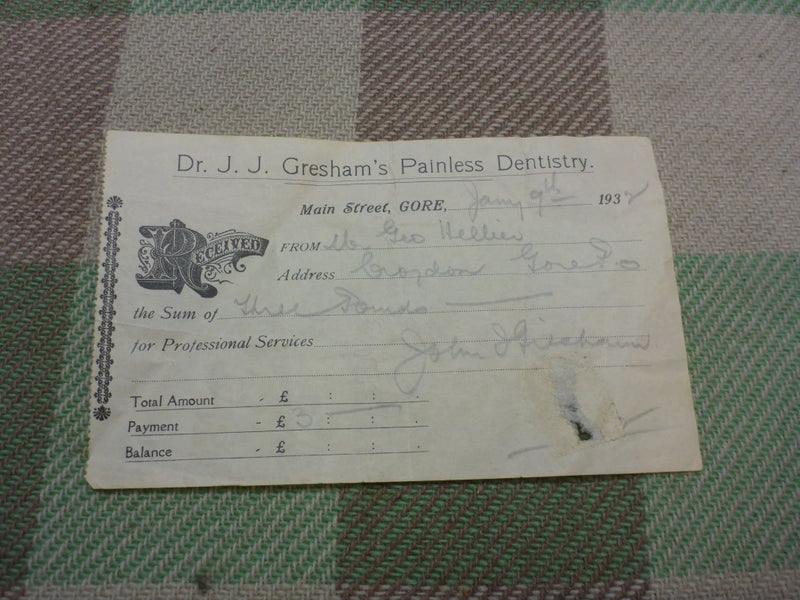 Dr. J. J. Gresham's Painless Dentistry.
Main Street, GORE, Jany 9th 1932
RECEIVED
FROM Mr. Geo Hellier
Address Croydon Gore
the Sum of Three Pounds
for Professional Services John J Gresham
Total Amount - £ : :
Payment - £ 3 : :
Balance - £ : :